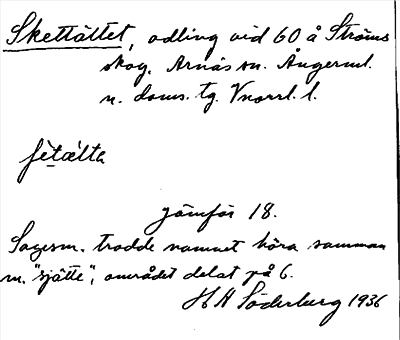 Skettättet, odling vid 60 å Ströms
skog, Arnäs sn. Ångerml.
n. doms. tg. Vnorrl. l.
jämför 18.
Sagesm. trodde namnet höra samman
m. "sjätte", området delat på 6.
H H Söderberg 1936